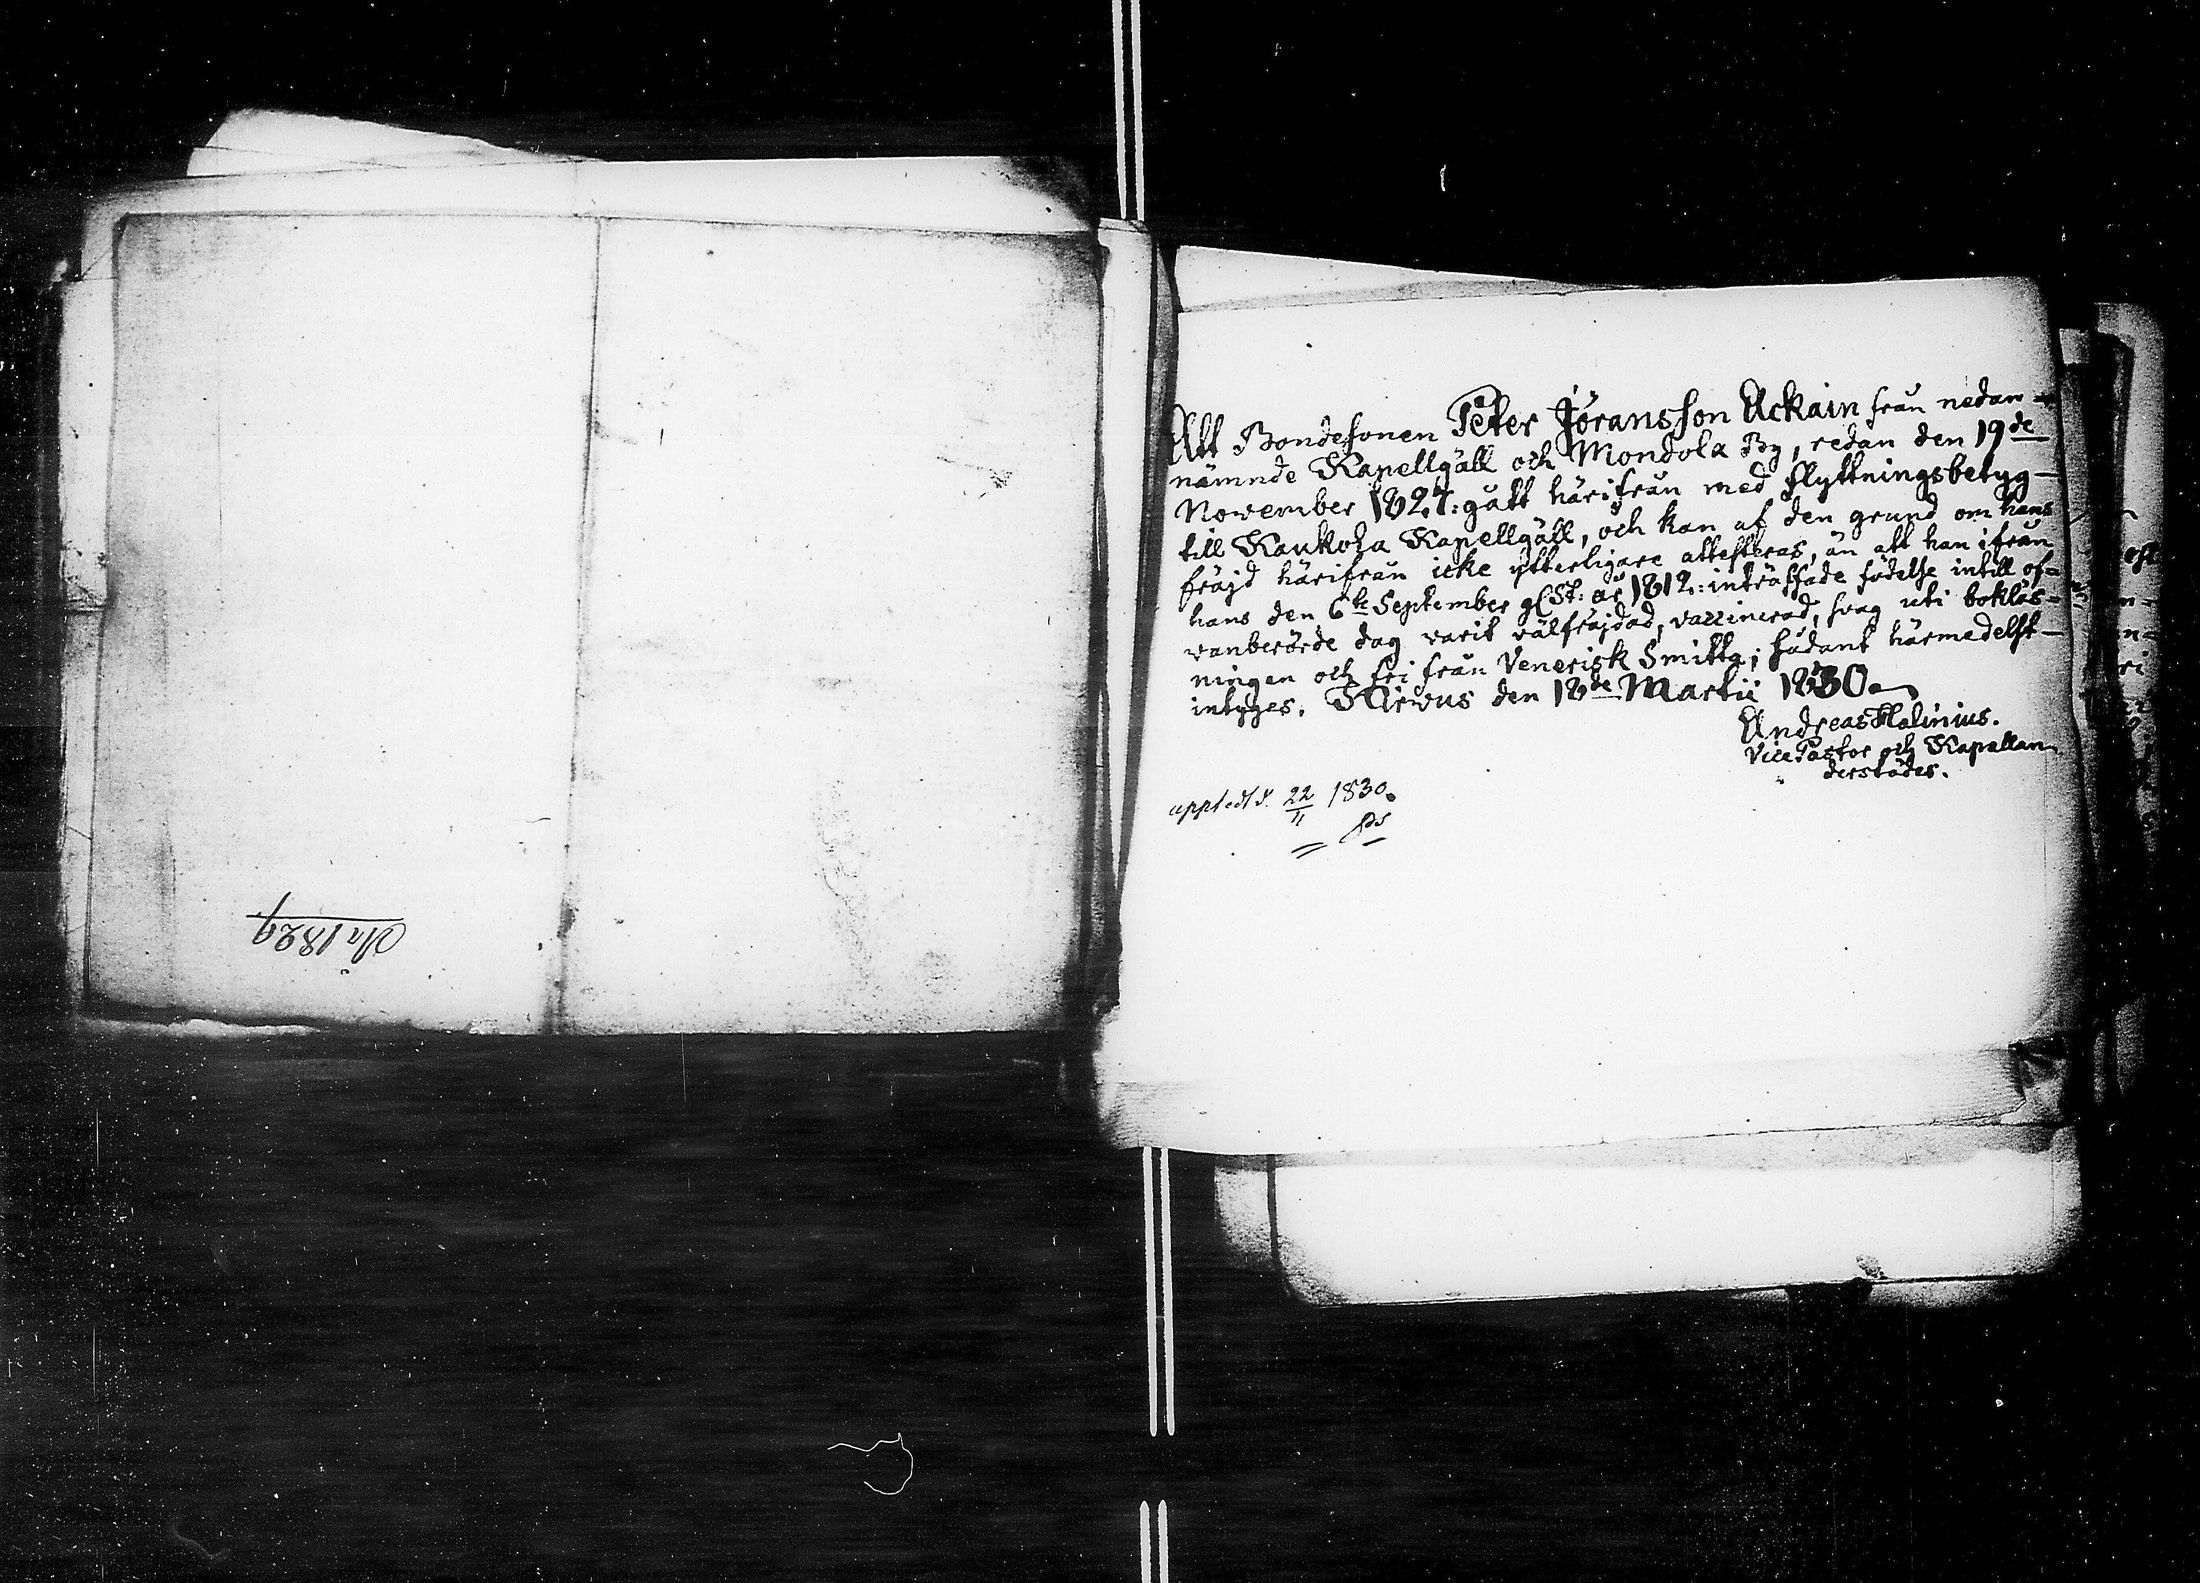 Att Bondesonen Peter Jöransson Uckain från nedan-
nämnde Kapellgäll och Mondola By, redan den 19de
November 1827: gått härifrån med flyttningsbetyg
till Kaukola Kapellgäll, och kan af den grund om hans
fräjd härifrån icke ytterligare attesteras, än att han ifrån
hans den 6te September gl St: år 1812: inträffade födelse intill of-
vanberörde dag varit välfräjdad, vaccinerad, svag uti bokläs-
ningen och fri från Venerisk Smitta; sådant härmedelst
intyges. Kirvus den 18de Martii 1830.
Andreas Halinius.
Vice Pastor och Kapellan
derstädes.
uppl edl d. 22/11 1830.
An 1829